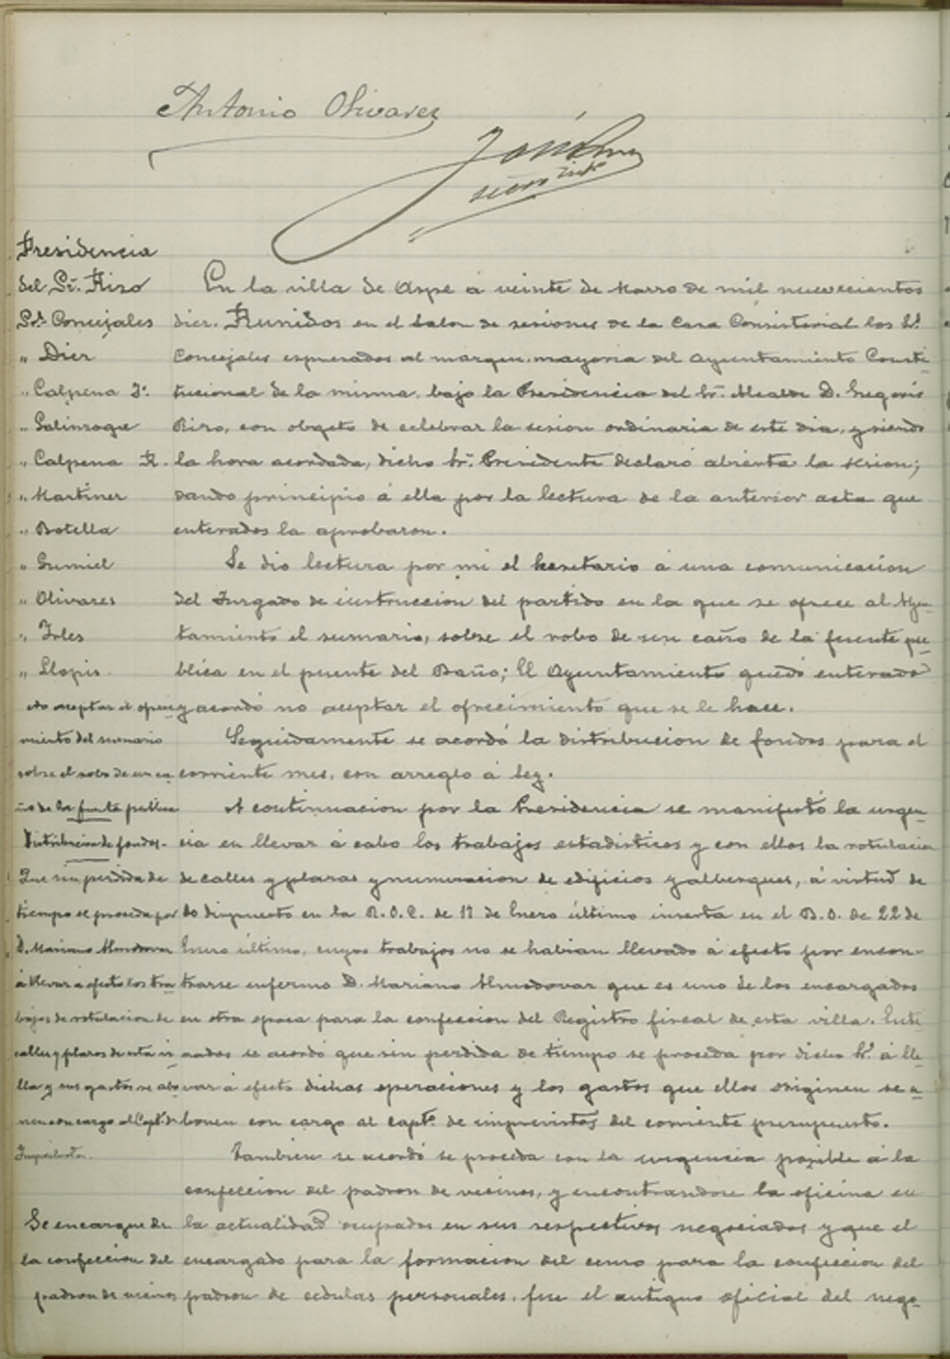 Antonio Olivares
Presidencia
del Sr. Rizo
Srs. Concejales
" Diez
" Calpena J.
" Galinsoga
" Calpena R.
" Martinez
" Botella
" Gumiel
" Olivares
" Irles
" Llopis
miento del sumario
sobre el robo de un ca-
ño de la fuente publica
Distribucion de fondos.
Que sin perdida de
tiempo se proceda por
D. Mariano Almodovar
á llevar á efecto los tra-
bajos de rotulacion de
calles y plazas de esta vi-
lla y sus gastos se abo-
nen con cargo al Capt. de
Imprevistos.
Se encargue de
la confeccion del
padron de vecinos
En la villa de Aspe á veinte de Marzo de mil nuevecientos
diez. Reunidos en el Salon de sesiones de la Casa Consistorial los Srs.
Concejales espresados al margen, mayoria del Ayuntamiento Consti-
tucional de la misma, bajo la Presidencia del Sr. Alcalde D. Gregorio
Rizo, con objeto de celebrar la sesion ordinaria de este dia, y siendo
la hora acordada, dicho Sr. Presidente declaró abierta la sesion;
dando principio á ella por la lectura de la anterior acta que
enterados la aprobaron.
Se dio lectura por mi el Secretario á una comunicacion
del Juzgado de instruccion del partido en la que se ofrece al Ayun-
tamiento el sumario, sobre el robo de un caño de la fuente pu-
blica en el puente del Baño; El Ayuntamiento quedó enterado
y acordó no aceptar el ofrecimiento que se le hace.
Seguidamente se acordó la distribucion de fondos para el
corriente mes, con arreglo á ley.
A continuacion por la Presidencia se manifestó la urgen-
cia en llevar á cabo los trabajos estadisticos y con ellos la rotulacion
de calles y plazas y numeracion de edificios y albergues, á virtud de
lo dispuesto en la R.O.C. de 17 de Enero último inserta en el B.O. de 22 de
Enero último, cuyos trabajos no se habian llevado á efecto por encon-
trarse enfermo D. Mariano Almodovar que es uno de los encargados
en otra epoca para la confeccion del Registro fiscal de esta villa. Ente-
rados se acordó que sin perdida de tiempo se proceda por dicho Sr. á lle-
var á efecto dichas operaciones y los gastos que ellos originen se a-
bonen con cargo al capt. de imprevistos del corriente presupuesto.
Tambien se acordó se proceda con la urgencia posible á la
confeccion del padron de vecinos, y encontrandose la oficina en
la actualidad ocupados en sus respectivos negociados y que el
encargado para la formacion del censo para la confeccion del
padron de cedulas personales, fue el antiguo oficial del nego-